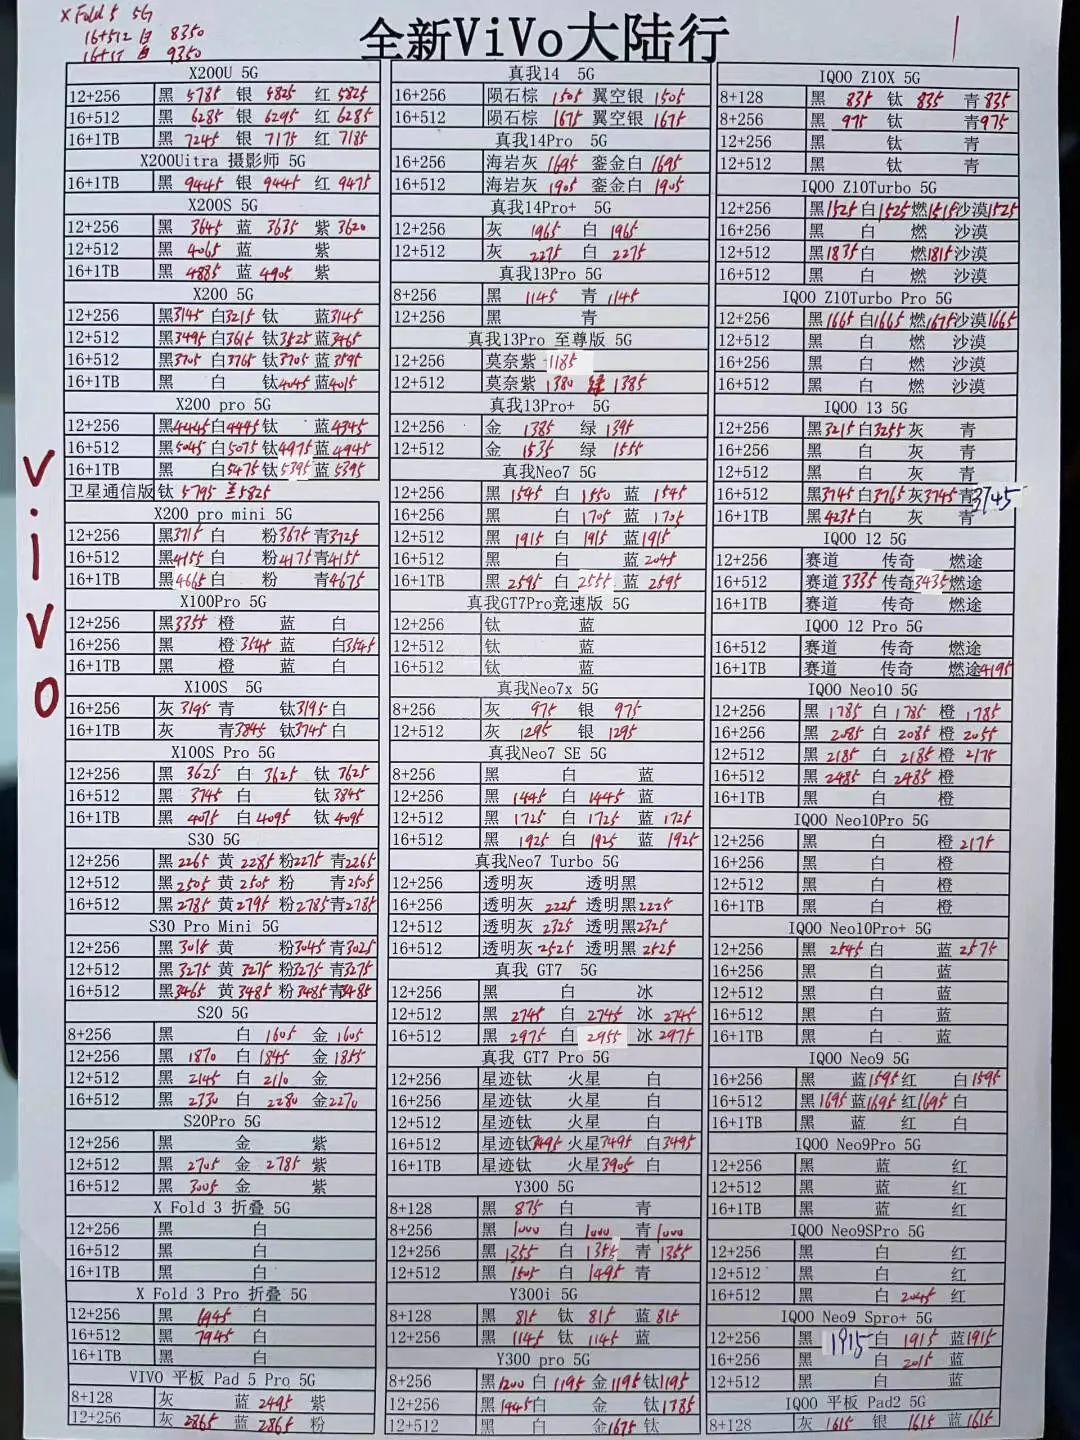 X Fold 5 5G
16+512 白 8350
16+1T 白 9350
全新ViVo大陆行
ViVo
X200U 5G
12+256 黑 5785 银 5825 红 5825
16+512 黑 6285 银 6295 红 6285
16+1TB 黑 7245 银 7175 红 7185
X200Uitra 摄影师 5G
16+1TB 黑 9445 银 9445 红 9475
X200S 5G
12+256 黑 3645 蓝 3635 紫 3620
12+512 黑 4065 蓝 紫
16+1TB 黑 4885 蓝 4905 紫
X200 5G
12+256 黑3145 白3215 钛 蓝3145
12+512 黑3495 白3615 钛3525 蓝3465
16+512 黑3705 白3765 钛3705 蓝3595
16+1TB 黑 白 钛4045 蓝4015
X200 pro 5G
12+256 黑4445 白4445 钛 蓝4345
16+512 黑5045 白5075 钛4975 蓝4945
16+1TB 黑 白5475 钛5395 蓝5395
卫星通信版 钛 5795 兰5825
X200 pro mini 5G
12+256 黑3715 白 粉3675 青3725
16+512 黑4155 白 粉4175 青4155
16+1TB 黑4665 白 粉 青4675
X100Pro 5G
12+256 黑3355 橙 蓝 白
16+256 黑 橙 3545 蓝 白3545
16+1TB 黑 橙 蓝 白
X100S 5G
16+256 灰 3195 青 钛3195 白
16+1TB 灰 青3845 钛3745 白
X100S Pro 5G
12+256 黑 3625 白 3625 钛 3625
16+512 黑 3745 白 钛3845
16+1TB 黑 4075 白 4095 钛 4095
S30 5G
12+256 黑2265 黄 2285 粉2275 青2265
12+512 黑2505 黄 2505 粉 青2505
16+512 黑2785 黄2795 粉 2785 青2785
S30 Pro Mini 5G
12+256 黑 3015 黄 粉3045 青3025
12+512 黑 3275 黄 3275 粉3275 青3275
16+512 黑3465 黄 3485 粉 3485 青3485
S20 5G
8+256 黑 白 1605 金 1605
12+256 黑 1870 白 1845 金 1855
12+512 黑 2145 白 2110 金
16+512 黑 2330 白 2280 金2270
S20Pro 5G
12+256 黑 金 紫
12+512 黑 2705 金 2785 紫
16+512 黑 3005 金 紫
X Fold 3 折叠 5G
12+256 黑 白
16+512 黑 白
16+1TB 黑 白
X Fold 3 Pro 折叠 5G
12+256 黑 6945 白
16+512 黑 7945 白
16+1TB 黑 白
VIVO 平板 Pad 5 Pro 5G
8+128 灰 蓝 2495 紫
12+256 灰 2865 蓝 2865 粉
真我14 5G
16+256 陨石棕 1505 翼空银 1505
16+512 陨石棕 1675 翼空银 1675
真我14Pro 5G
16+256 海岩灰 1695 銮金白 1695
16+512 海岩灰 1905 銮金白 1905
真我14Pro+ 5G
12+256 灰 1965 白 1965
12+512 灰 2275 白 2275
真我13Pro 5G
8+256 黑 1145 青 1145
12+256 黑 青
真我13Pro 至尊版 5G
12+256 莫奈紫 1185
12+512 莫奈紫 1380 绿 1385
真我13Pro+ 5G
12+256 金 1385 绿 1395
12+512 金 1535 绿 1555
真我Neo7 5G
12+256 黑 1545 白 1550 蓝 1545
16+256 黑 白 1705 蓝 1705
12+512 黑 1915 白 1915 蓝1915
16+512 黑 白 蓝 2045
16+1TB 黑 2595 白 2555 蓝 2595
真我GT7Pro竞速版 5G
12+256 钛 蓝
12+512 钛 蓝
16+512 钛 蓝
真我Neo7x 5G
8+256 灰 975 银 975
12+512 灰 1295 银 1295
真我Neo7 SE 5G
8+256 黑 白 蓝
12+256 黑 1445 白 1445 蓝
12+512 黑 1725 白 1725 蓝 1725
16+512 黑 1925 白 1925 蓝 1925
真我Neo7 Turbo 5G
12+256 透明灰 透明黑
16+256 透明灰 2225 透明黑2225
12+512 透明灰 2325 透明黑2325
16+512 透明灰2525 透明黑 2525
真我 GT7 5G
12+256 黑 白 冰
12+512 黑 2745 白 2745 冰 2745
16+512 黑 2975 白 2955 冰 2975
真我 GT7 Pro 5G
12+256 星迹钛 火星 白
16+256 星迹钛 火星 白
12+512 星迹钛 火星 白
16+512 星迹钛3495 火星3495 白3495
16+1TB 星迹钛 火星3905 白
Y300 5G
8+128 黑 875 白 青
8+256 黑 1000 白 1000 青 1000
12+256 黑 1355 白 1355 青 1355
12+512 黑 1505 白 1495 青
Y300i 5G
8+128 黑 815 钛 815 蓝 815
12+256 黑 1145 钛 1145 蓝
Y300 pro 5G
8+256 黑1200 白 1195 金 1195 钛1195
12+256 黑1445 白 金 钛1385
12+512 黑 白 金1675 钛
IQOO Z10X 5G
8+128 黑 835 钛 835 青 835
8+256 黑 975 钛 青975
12+256 黑 钛 青
12+512 黑 钛 青
IQOO Z10Turbo 5G
12+256 黑1525 白1525 燃1515 沙漠1525
16+256 黑 白 燃 沙漠
12+512 黑1835 白 燃1815 沙漠
16+512 黑 白 燃 沙漠
IQOO Z10Turbo Pro 5G
12+256 黑1665 白1665 燃1675 沙漠1665
12+512 黑 白 燃 沙漠
16+256 黑 白 燃 沙漠
16+512 黑 白 燃 沙漠
IQOO 13 5G
12+256 黑3215 白3255 灰 青
16+256 黑 白 灰 青
12+512 黑 白 灰 青
16+512 黑3745 白3765 灰3745 青3745
16+1TB 黑4235 白 灰 青
IQOO 12 5G
12+256 赛道 传奇 燃途
16+512 赛道 3335 传奇3435 燃途
16+1TB 赛道 传奇 燃途
IQOO 12 Pro 5G
16+512 赛道 传奇 燃途
16+1TB 赛道 传奇 燃途4195
IQOO Neo10 5G
12+256 黑 1785 白 1785 橙 1785
16+256 黑 2085 白 2085 橙 2055
12+512 黑 2185 白 2185 橙 2175
16+512 黑 2485 白 2485 橙
16+1TB 黑 白 橙
IQOO Neo10Pro 5G
12+256 黑 白 橙 2175
16+256 黑 白 橙
12+512 黑 白 橙
16+1TB 黑 白 橙
IQOO Neo10Pro+ 5G
12+256 黑 2545 白 蓝 2575
16+256 黑 白 蓝
12+512 黑 白 蓝
16+512 黑 白 蓝
16+1TB 黑 白 蓝
IQOO Neo9 5G
16+256 黑 蓝1595 红 白1595
16+512 黑1695 蓝1695 红1695 白
16+1TB 黑 蓝 红 白
IQOO Neo9Pro 5G
12+256 黑 蓝 红
12+512 黑 蓝 红
16+1TB 黑 蓝 红
IQOO Neo9SPro 5G
12+256 黑 白 红
12+512 黑 白 红
16+512 黑 白 2045 红
IQOO Neo9 Spro+ 5G
12+256 黑 1915 白 1915 蓝1915
16+256 黑 白 2015 蓝
12+512 黑 白 蓝
IQOO 平板 Pad2 5G
8+128 灰 1615 银 1615 蓝1615